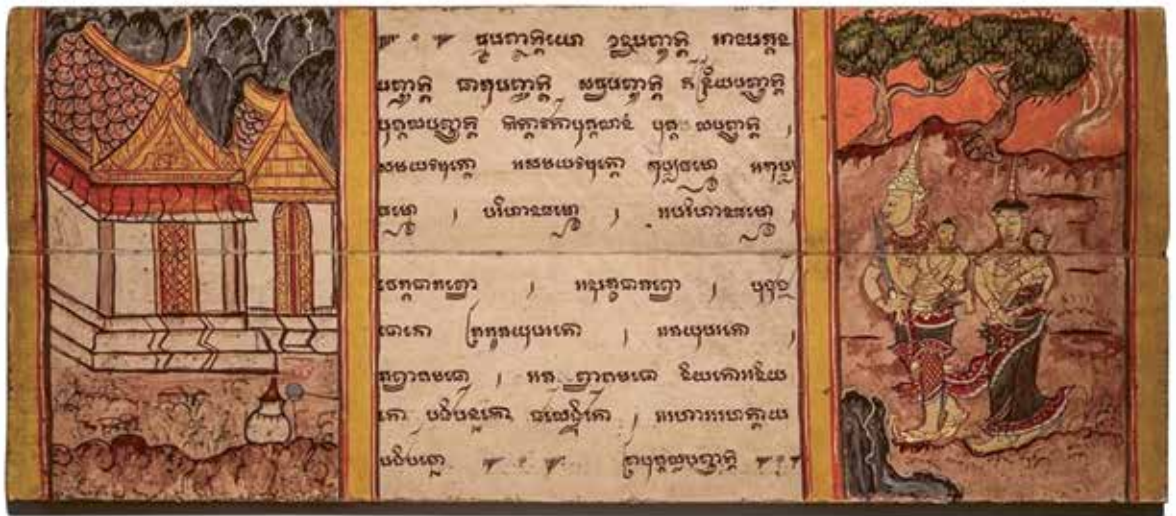 ឆប្បញ្ញត្តិយោ ខន្ធបញ្ញត្តិ អាយតន
បញ្ញត្តិ ធាតុបញ្ញត្តិ សច្ចបញ្ញត្តិ ឥន្ទ្រិយបញ្ញត្តិ
បុគ្គលបញ្ញត្តិ កិត្តាវតាបុគ្គលានំ បុគ្គលបញ្ញត្តិ ,
សមយវិមុត្តោ អសមយវិមុត្តោ កុប្បធម្មោ អកុប្ប
ធម្មោ , បរិហានធម្មោ , អបរិហានធម្មោ
ចេតនាភព្ពោ , អនុរក្ខនាភព្ពោ , បុថុជ្ជ
នោ , អភយូបរតោ ,
ភព្ពាគមនោ , អភព្ពាគមនោ និយតោ អនិយ
តោ បដិបន្នកោ ផលេដ្ឋិតោ , អរហាអរហត្តាយ
បដិបន្នោ ព្របុគ្គលបញ្ញត្តិ